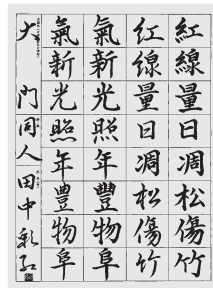 紅線量日凋松傷竹
紅線量日凋松傷竹
氣新光照年豐物阜
氣新光照年豊物阜
大門同人田中彩